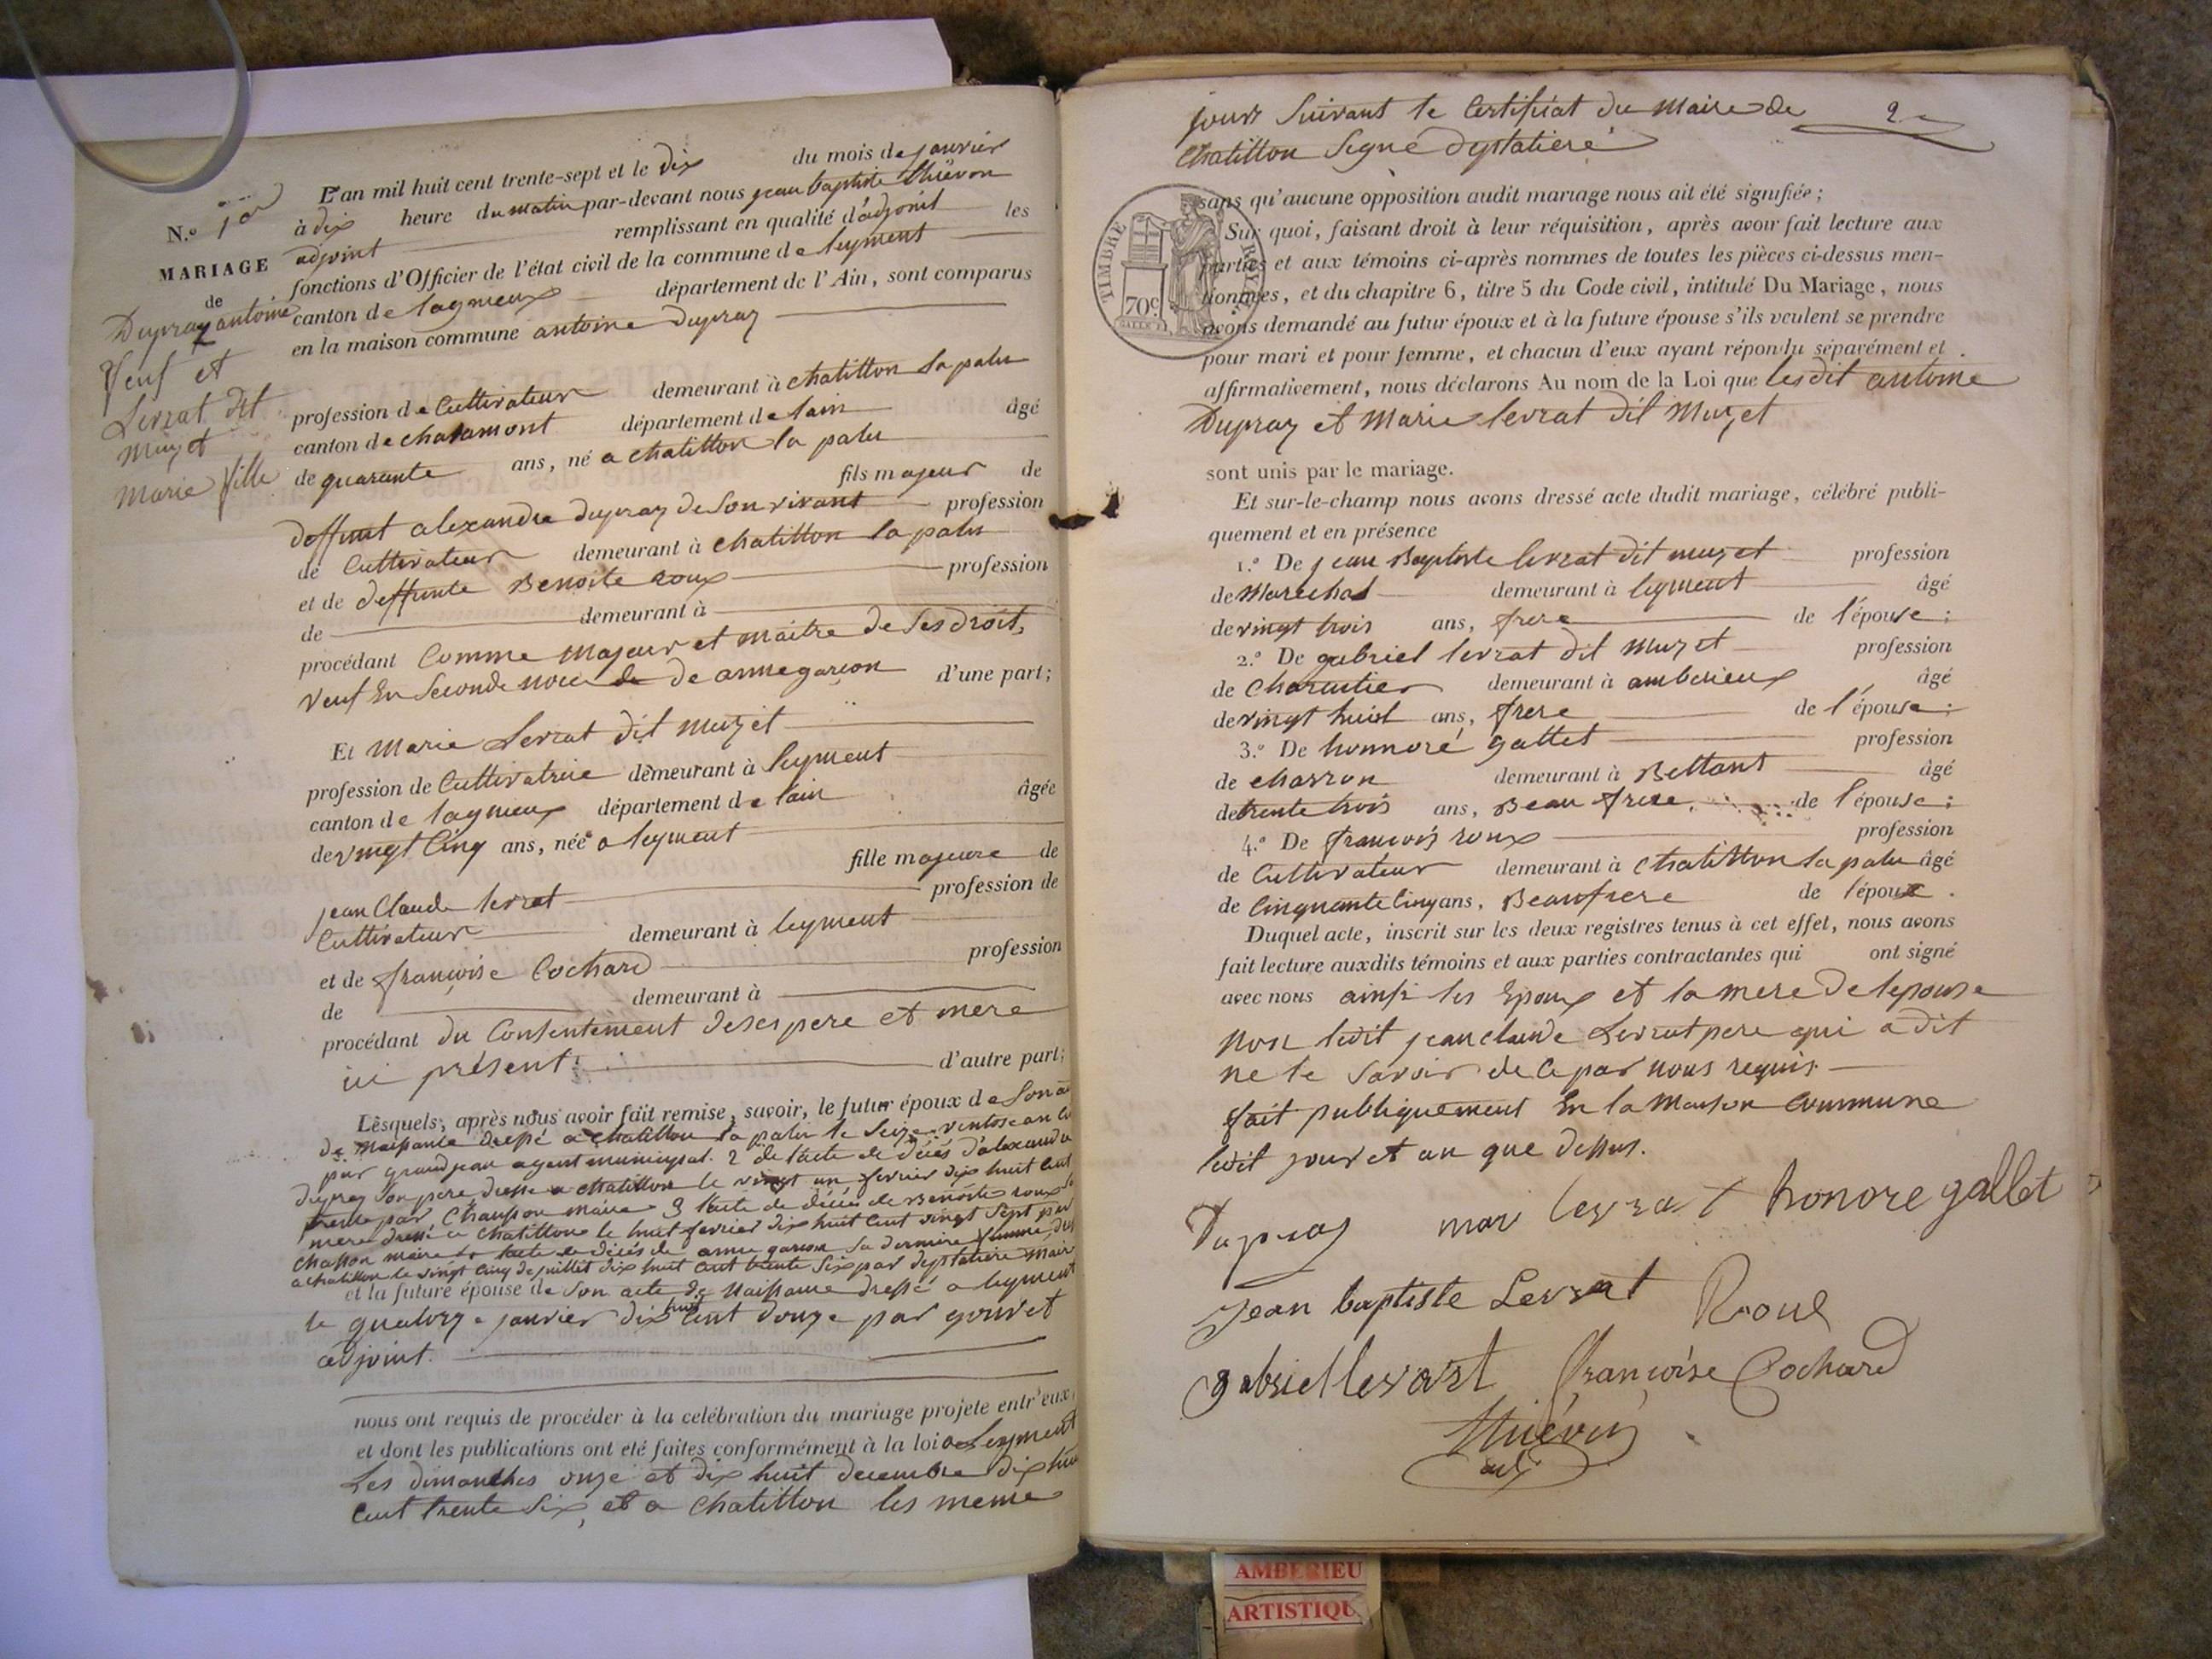 N.o 1er
MARIAGE
de
Dupraz antoine
Veuf et
Levrat dit
Muzet
Marie fille
L'an mil huit cent trente-sept et le dix du mois de janvier
à dix heure du matin par-devant nous jean baptiste thiévon
adjoint remplissant en qualité d'adjoint les
fonctions d'Officier de l'état civil de la commune de leyment
canton de lagnieux département de l'Ain, sont comparus
en la maison commune antoine Dupraz
profession de Cultivateur demeurant à chatillon la palu
canton de chalamont département de lain âgé
de quarante ans, né a chatillon la palu
fils majeur de
deffunt alexandre dupraz de Son vivant profession
de Cultivateur demeurant à chatillon la palu
et de deffunte Benoite roux profession
de demeurant à
procédant Comme majeur et maitre de Ses droit,
Veuf En Seconde noce de de anne garçon d'une part;
Et Marie Levrat dit muzet
profession de Cultivatrice demeurant à leyment
canton de lagnieux département de lain âgée
de vingt Cinq ans, née a leyment
fille majeure de
jean Claude levrat profession de
Cultivateur demeurant à leyment
et de françoise Cochard profession
de demeurant à
procédant du Consentement deses pere et mere
ici présent: d'autre part;
Lesquels, après nous avoir fait remise, savoir, le futur époux de Son
de Naissance dressé a chatillon la palu le Seize ventose an
par grandjean agent municipal. 2 de l'acte de décés d'alexandre
dupray Son pere dressé a chatillon le vingt un fevrier dix huit Cent
par Chausson maire 3 l'acte de décés de Benoite roux
mere dressé a chatillon le huit fevrier dix huit Cent vingt Sept par
maire l'acte de décés de anne garcon Sa derniere femme
a chatillon le vingt Cinq de juillet dix huit Cent trente Six par dystatiere maire
et la future épouse de Son acte de Naissance dressé a leyment
le quatorze janvier dix huit Cent douze par gouvet
adjoint.
nous ont requis de procéder à la celébration du mariage projete entr'eux,
et dont les publications ont été faites conformément à la loi a Leyment
Les dimanches onze et dix huit decembre dix huit
Cent trente Six, et a chatillon les meme
jours Suivant le Certifiat du Maire de 2
Chatillon Signé dystatiere
TIMBRE ROYAL
70c
sans qu'aucune opposition audit mariage nous ait été signifiée;
Sur quoi, faisant droit à leur réquisition, après avoir fait lecture aux
parties et aux témoins ci-après nommes de toutes les pièces ci-dessus men-
tionnées, et du chapitre 6, titre 5 du Code civil, intitulé Du Mariage, nous
avons demandé au futur époux et à la future épouse s'ils veulent se prendre
pour mari et pour femme, et chacun d'eux ayant répondu séparément et
affirmativement, nous déclarons Au nom de la Loi que lesdit antoine
Dupraz et Marie levrat dit Muzet
sont unis par le mariage.
Et sur-le-champ nous avons dressé acte dudit mariage, célébré publi-
quement et en présence
1.o De jean Baptiste levrat dit muzet profession
de Marechal demeurant à leyment âgé
de vingt trois ans, frere de l'épouse;
2.o De gabriel levrat dit Muzet profession
de Charpentier demeurant à amberieux âgé
de vingt huit ans, frere de l'épouse;
3.o De honnoré gallet profession
de charron demeurant à Bettant âgé
de trente trois ans, Beau frere, de l'épouse;
4.o De françois roux profession
de Cultivateur demeurant à Chatillon la palu âgé
de Cinquante Cinq ans, Beaufrere de l'époux.
Duquel acte, inscrit sur les deux registres tenus à cet effet, nous avons
fait lecture auxdits témoins et aux parties contractantes qui ont signé
avec nous ainsi les Epoux et la mere de lepouse
Non ledit jean claude Levrat pere qui a dit
ne le Savoir de Ce par nous requis.
fait publiquement En la Maison commune
ledit jour et an que dessus.
Dupraz mari levrat honore gallet
Jean baptiste Levrat Roux
gabriel levrat françoise Cochard
thiévon
adj
AMBERIEU
ARTISTIQU